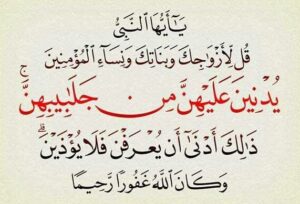 يَٰٓأَيُّهَا ٱلنَّبِىُّ
قُل لِّأَزْوَٰجِكَ وَبَنَاتِكَ وَنِسَآءِ ٱلْمُؤْمِنِينَ
يُدْنِينَ عَلَيْهِنَّ مِن جَلَٰبِيبِهِنَّ ۚ
ذَٰلِكَ أَدْنَىٰٓ أَن يُعْرَفْنَ فَلَا يُؤْذَيْنَ ۗ
وَكَانَ ٱللَّهُ غَفُورًا رَّحِيمًا